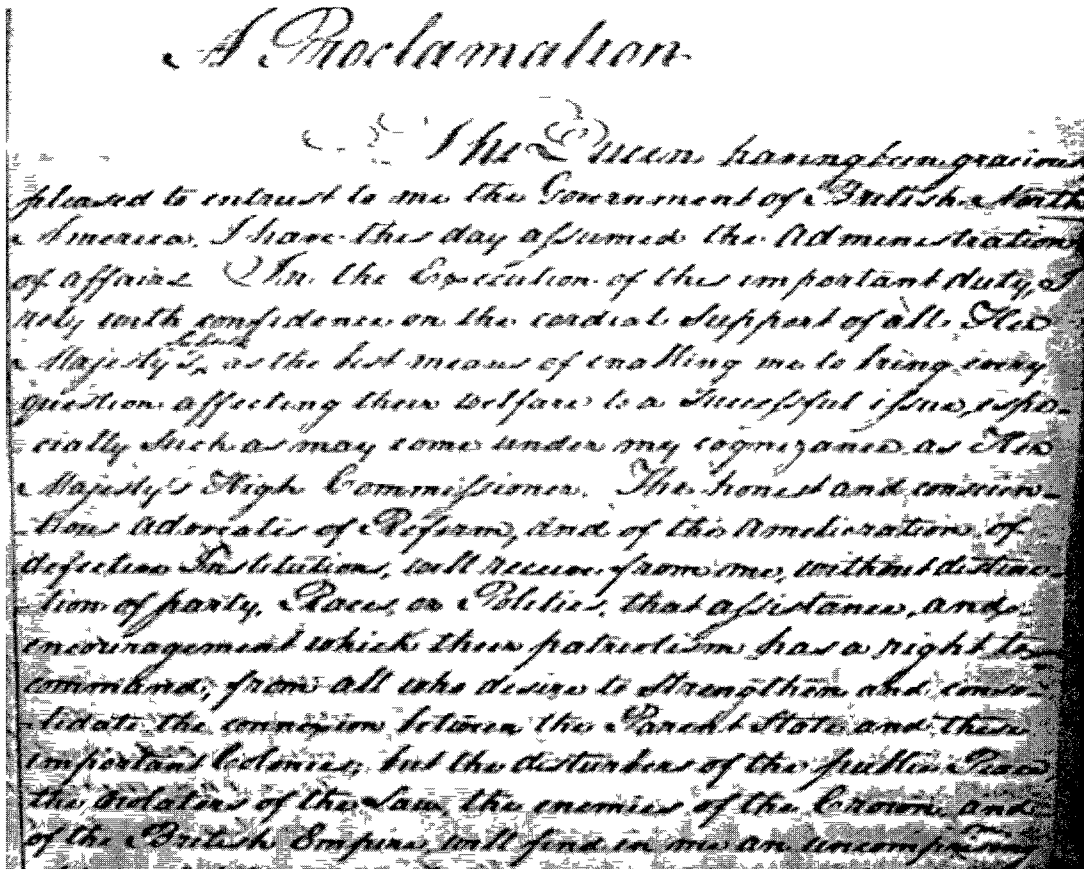 A Proclamation
The Queen having been gracious
pleased to entrust to me the Government of British North
America. I have this day assumed the Administration
of affairs In the Execution of this important duty, I
rely with confidence on the cordial Support of all Her
Majesty's, as the best means of enabling me to bring every
question affecting their welfare to a Successful issue, espe-
cially Such as may come under my cognizance as Her
Majesty's High Commissioner. The honest and conscien-
tious Advocates of Reform, and of the Amelioration of
defective Institutions, will receive from me, without distinc-
tion of party, Races, or Politics, that assistance, and
encouragement which their patriotism has a right to
command, from all who desire to Strengthen and conso-
lidate the connexion between the Parent State and these
important Colonies; but the disturbers of the public Peace,
the Violators of the Law, the enemies of the Crown and
of the British Empire, will find in me an uncompromising